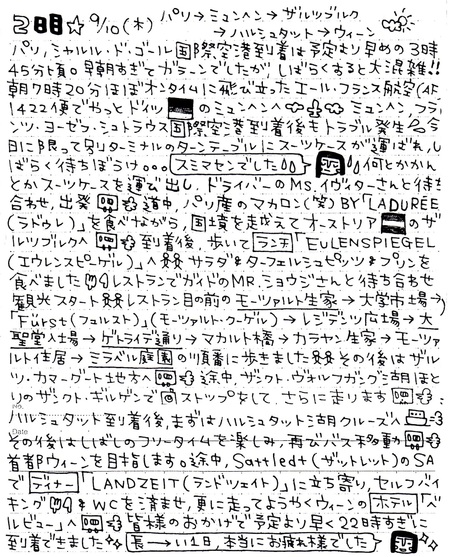 2日目☆ 9/10(木) パリ→ミュンヘン→ザルツブルク
→ハルシュタット→ウィーン
パリ,シャルル・ド・ゴール国際空港到着は予定より早めの3時
45分頃。早朝すぎてガラーンでしたが,しばらくすると大混雑!!
朝7時20分ほぼオンタイムに飛び立ったエール・フランス航空(AF
1422便でやっとドイツ のミュンヘンへ ミュンヘン,フラ
ンツ・ヨーゼフ・シュトラウス国際空港到着後もトラブル発生 今
日に限って別ターミナルのターンテーブルにスーツケースが運ばれ,し
ばらく待ちぼうけ。。。 スミマセンでした 何とかかん
とかスーツケースを運び出し,ドライバーのMS.イヴィターさんと待ち
合わせ,出発 道中,パリ産のマカロン(笑)BY「LADURÉE
(ラドゥレ)」を食べながら,国境を越えてオーストリア のザ
ルツブルクへ 到着後,歩いてランチ「EULENSPIEGEL
(エウレンスピーゲル)」へ サラダ&ターフェルシュピッツ&プリンを
食べました レストランでガイドのMR.ショウジさんと待ち合わせ
観光スタート レストラン目の前のモーツァルト生家→大学市場→
「Fürst(フュルスト)」(モーツァルト・クーゲル)→レジデンツ広場→大
聖堂入場→ゲトライデ通り→マカルト橋→カラヤン生家→モーツァ
ルト住居→ミラベル庭園の順番に歩きました その後はザル
ツ・カマーグート地方へ 途中,ザンクト・ヴォルフガング湖ほと
りのザンクト・ギルゲンで ストップをして,さらに走ります
No.
ハルシュタット到着後,まずはハルシュタット湖クルーズへ
Date
その後はしばしのフリータイムを楽しみ,再びバス移動
首都ウィーンを目指します。途中,Sattledt(ザットレット)のSA
でディナー「LANDZEIT(ランドツェイト)」に立ち寄り,セルフバイ
キング &WCを済ませ,更に走ってようやくウィーンのホテル「ベ
ルビュー」へ 皆様のおかげで予定より早く22時すぎに
到着できました 長→い1日,本当にお疲れ様でした